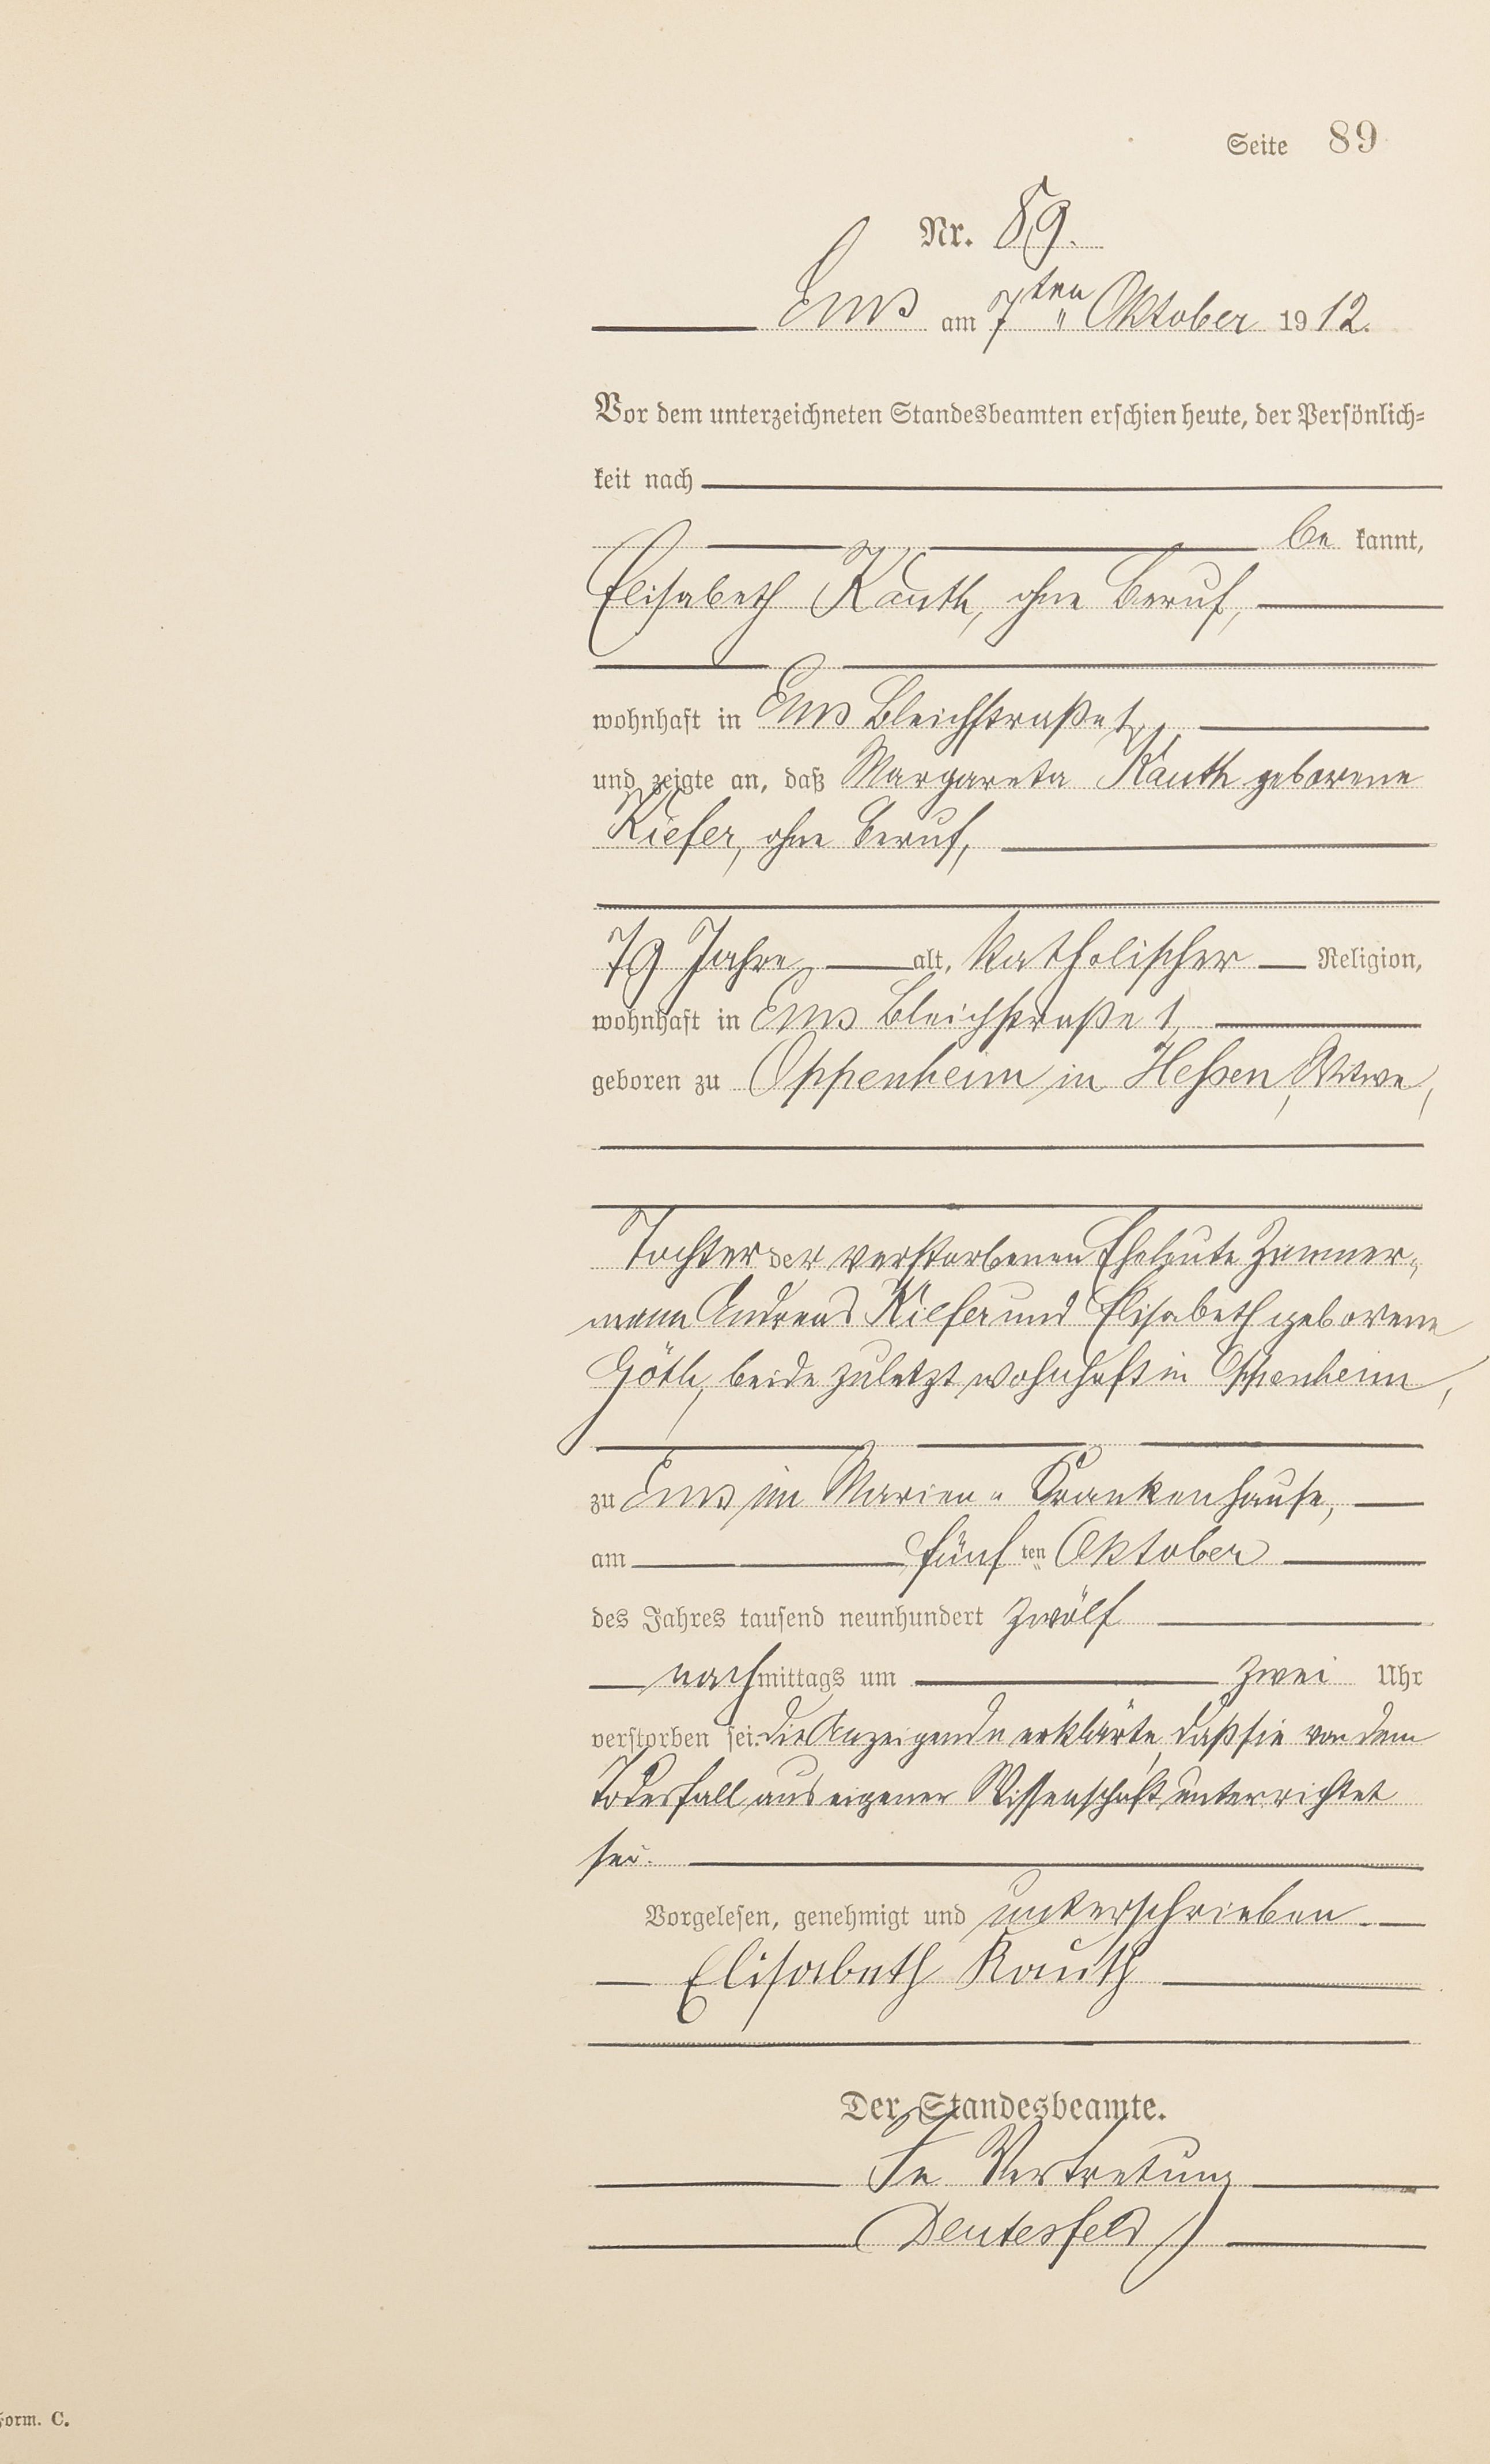 Seite 89
Nr. 89.
Ems am 7ten Oktober 1912.
Vor dem unterzeichneten Standesbeamten erschien heute, der Persönlich-
keit nach
be kannt,
Elisabeth Kauth, ohne Beruf,
wohnhaft in Ems Bleichstraße 1,
und zeigte an, daß Margareta Kauth geborene
Kiefer, ohne Beruf,
79 Jahre, alt, katholischer Religion,
wohnhaft in Ems Bleichstraße 1,
geboren zu Oppenheim in Hessen, Witwe,
Tochter der verstorbenen Eheleute Zimmer-
mann Andreas Kiefer und Elisabeth geborene
Göth, beide zuletzt wohnhaft in Oppenheim,
zu Ems im Marien-Krankenhause,
am fünften Oktober
des Jahres tausend neunhundert zwölf
nachmittags um zwei Uhr
verstorben sei. Die Anzeigende erklärte, daß sie von dem
Todesfall aus eigener Wissenschaft unterrichtet
sei.
Vorgelesen, genehmigt und unterschrieben
Elisabeth Kauth
Der Standesbeamte.
In Vertretung
Deutesfeld
Form. C.